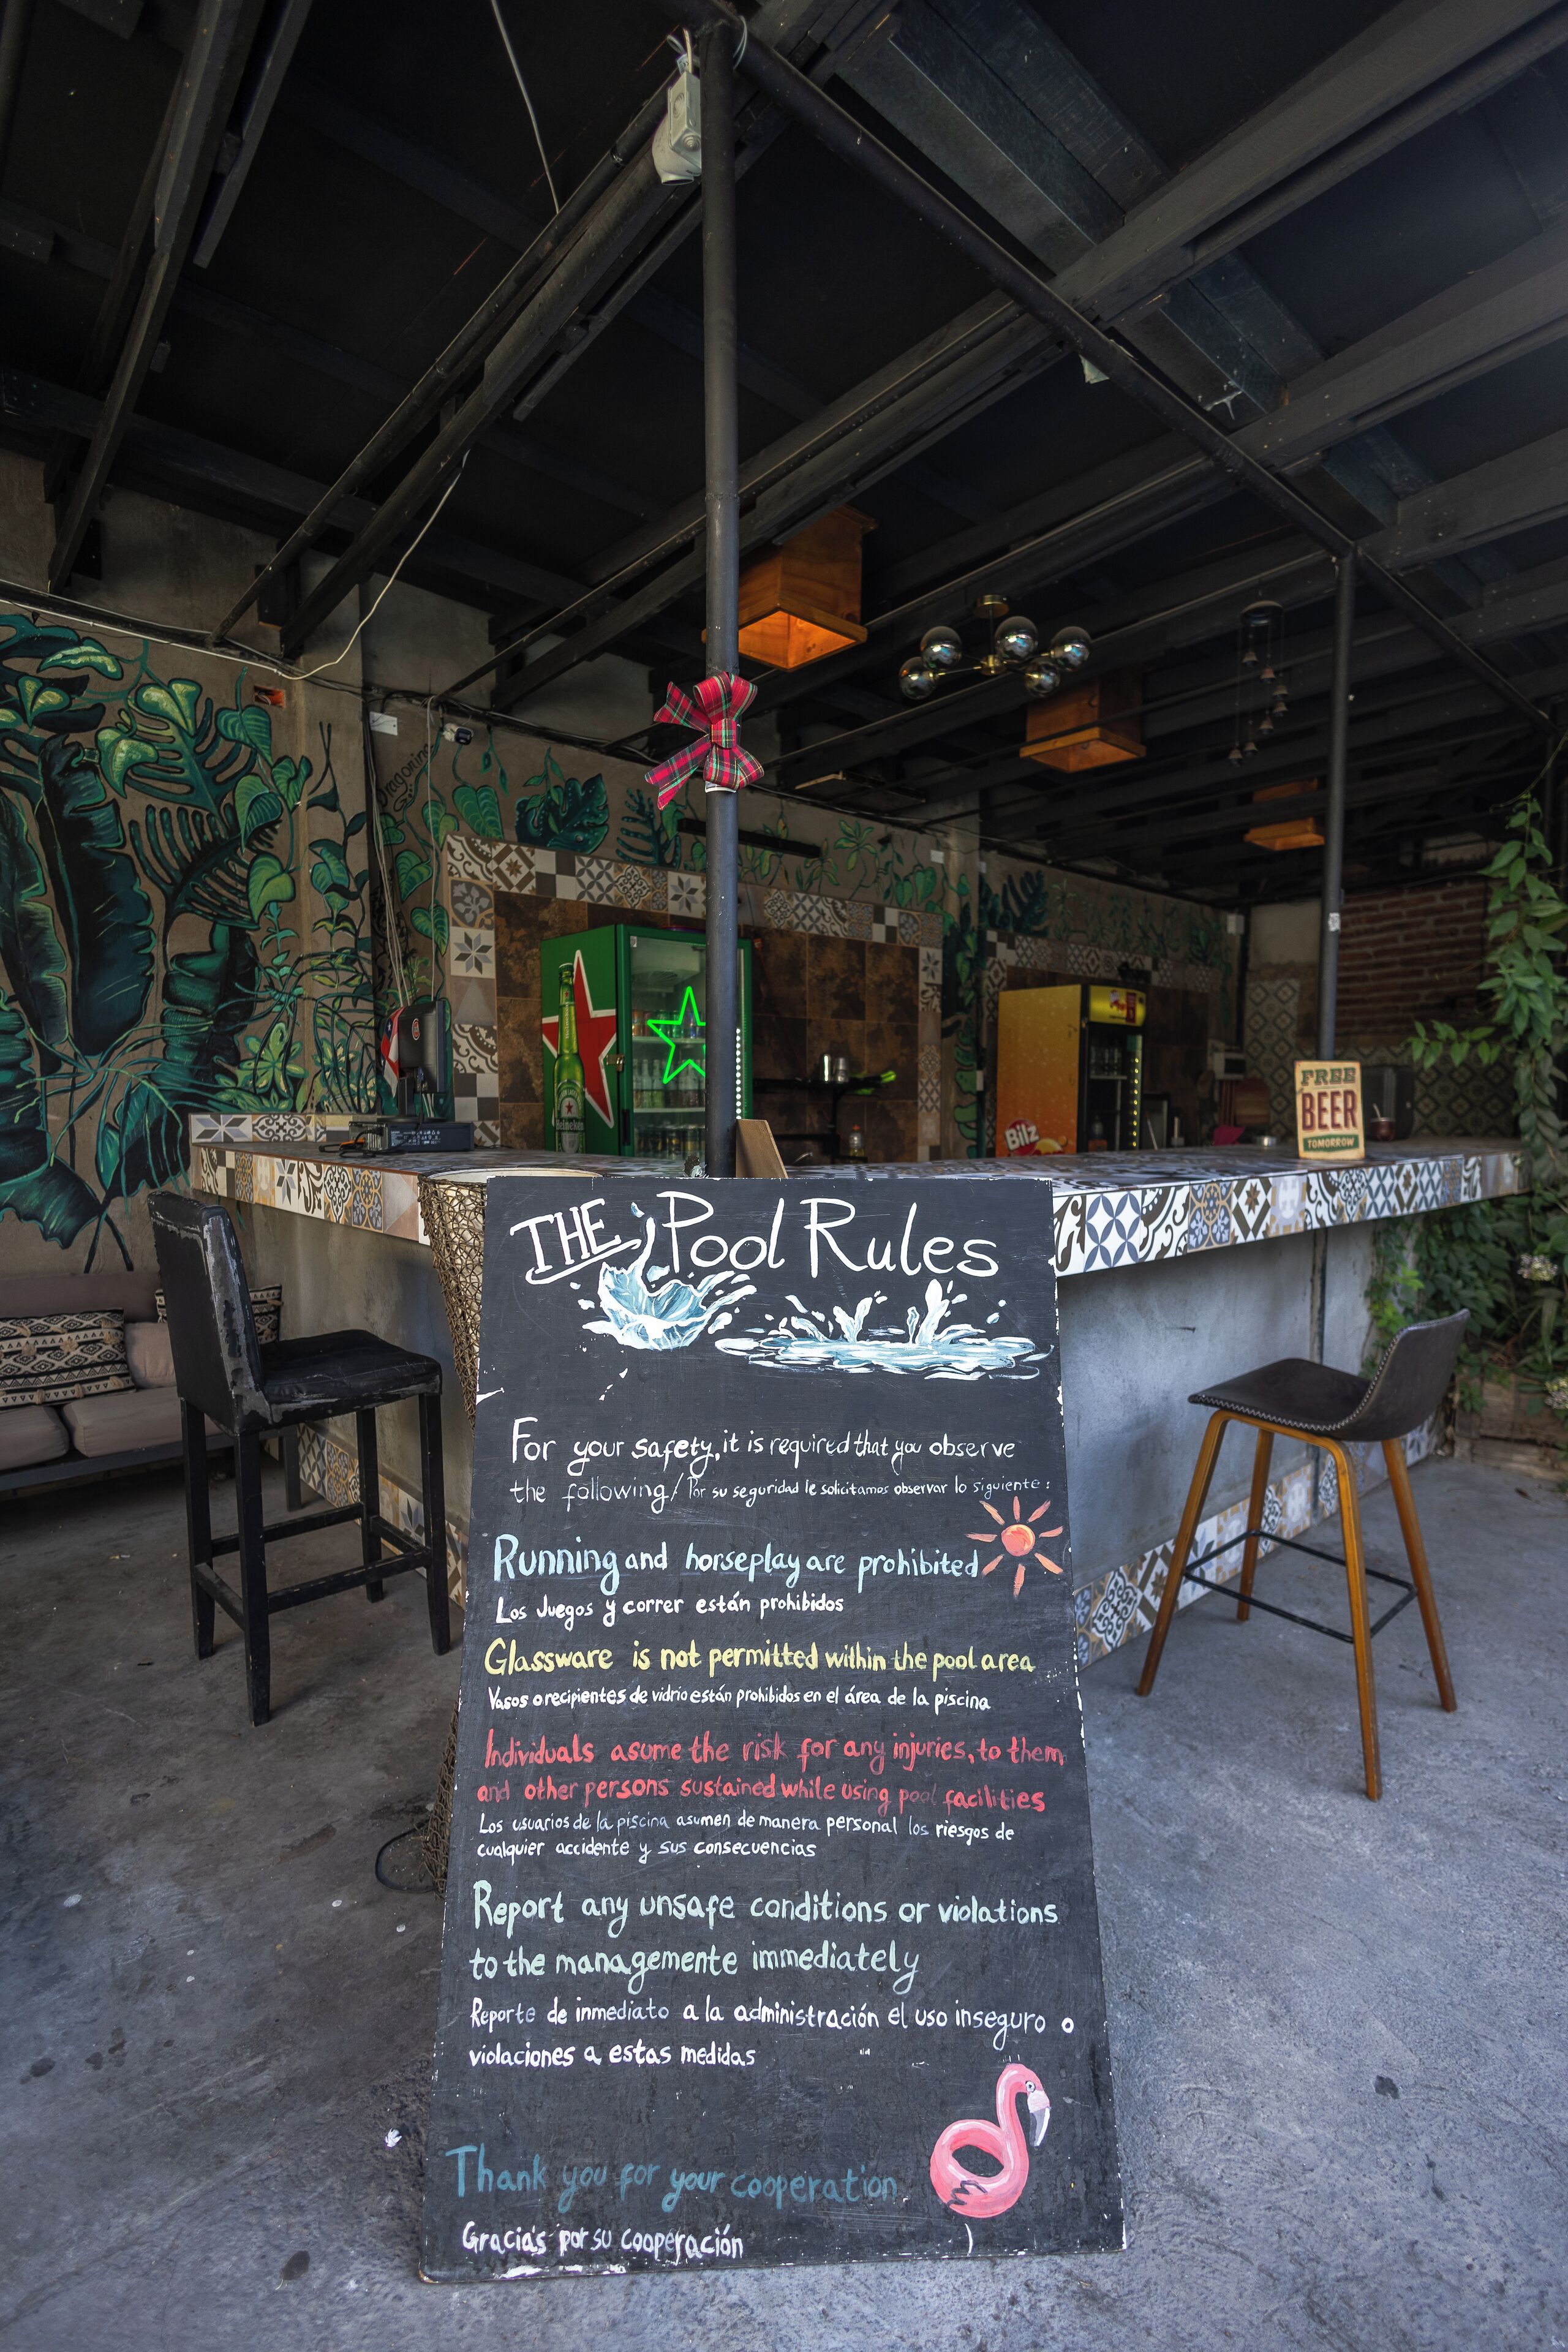 Dragorina
Heineken
Bilz
FREE
BEER
TOMORROW
THE Pool Rules
For your safety, it is required that you observe
the following/ Por su seguridad le solicitamos observar lo siguiente:
Running and horseplay are prohibited
Los Juegos y correr están prohibidos
Glassware is not permitted within the pool area
Vasos o recipientes de vidrio están prohibidos en el área de la piscina
Individuals asume the risk for any injuries, to them
and other persons sustained while using pool facilities
Los usuarios de la piscina asumen de manera personal los riesgos de
cualquier accidente y sus consecuencias
Report any unsafe conditions or violations
to the managemente immediately
Reporte de inmediato a la administración el uso inseguro o
violaciones a estas medidas
Thank you for your cooperation
Gracias por su cooperación